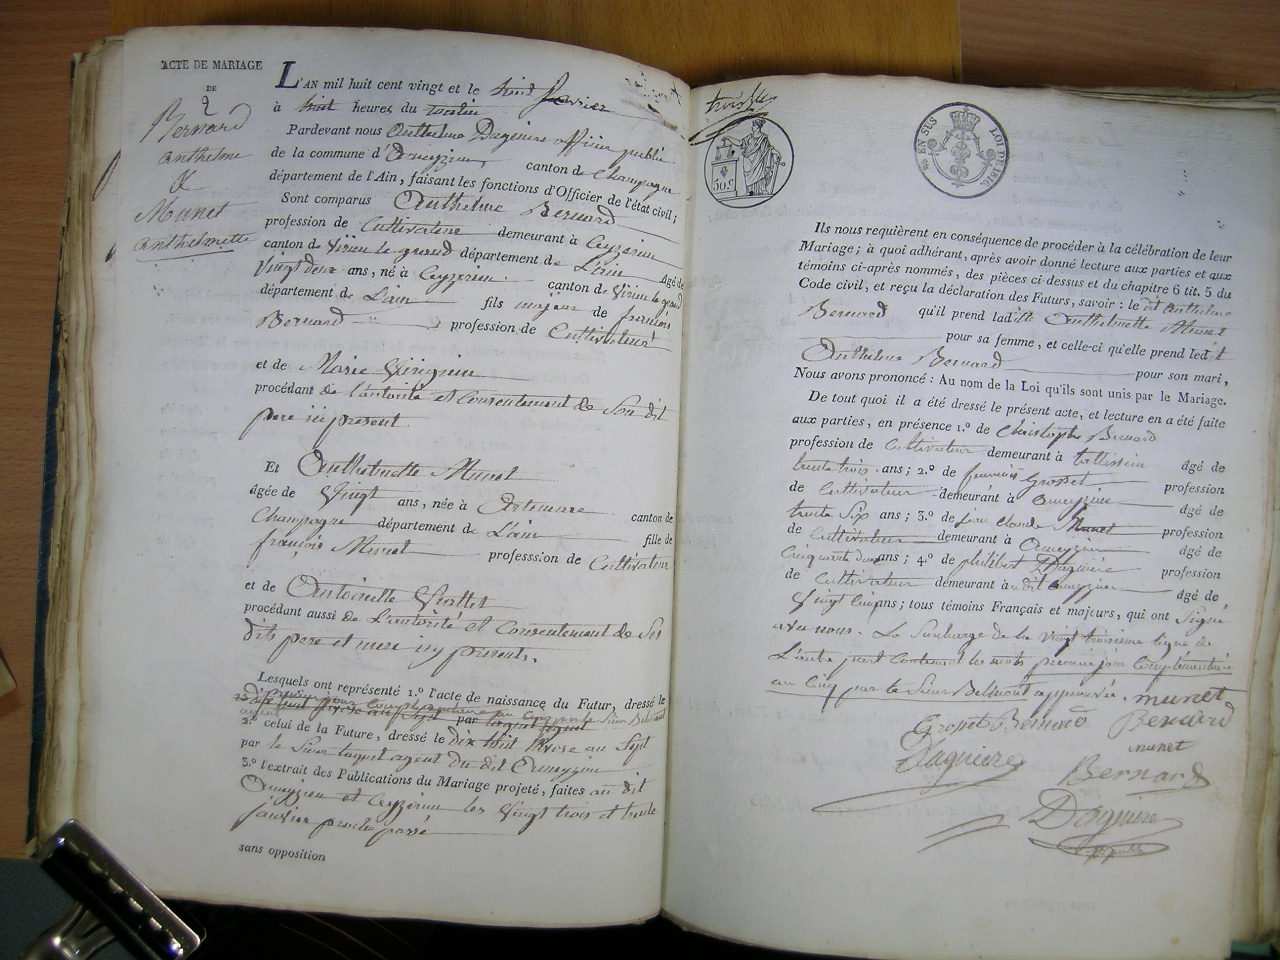 ACTE DE MARIAGE
DE
2
Bernard
anthelme
&
Munet
anthelmette
L'AN mil huit cent vingt et le huit fevrier
à huit heures du matin
Pardevant nous Anthelme Daguiere officier public
de la commune d'Omeyzieu canton de Champagne
département de l'Ain, faisant les fonctions d'Officier de l'état civil;
Sont comparus Anthelme Bernard
profession de Cultivateur demeurant à Ceyzerieu
canton de Virieu le grand département de L'ain âgé de
Vingt deux ans, né à Ceyzerieu canton de Virieu le grand
département de L'ain fils majeur de françois
Bernard profession de Cultivateur
et de Marie
procédant de l'autorité et Consentement de Son dit
pere ici present
Et Anthelmette Munet
âgée de Vingt ans, née à Artemare canton de
Champagne département de L'ain fille de
françois Munet professsion de Cultivateur
et de Antoinette
procédant aussi de L'autorité et Consentement de Ses
dits pere et mere icy presents.
Lesquels ont représenté 1.º l'acte de naissance du Futur, dressé le
premier jour Complementaire au Cinq par le Sieur Belmont
agent par
2.º celui de la Future, dressé le dix huit au Sept
par le Sieur agent du dit Omeyzieu
3.º l'extrait des Publications du Mariage projeté, faites au dit
Omeyzieu et Ceyzerieu les Vingt trois et trente
janvier proche passé
sans opposition
troisx
50 c
EN SUS LOI DE 1816
Ils nous requièrent en conséquence de procéder à la célébration de leur
Mariage; à quoi adhérant, après avoir donné lecture aux parties et aux
témoins ci-après nommés, des pièces ci-dessus et du chapitre 6 tit. 5 du
Code civil, et reçu la déclaration des Futurs, savoir: le dit Anthelme
Bernard qu'il prend ladite Anthelmette Munet
pour sa femme, et celle-ci qu'elle prend ledit
Anthelme Bernard pour son mari,
Nous avons prononcé: Au nom de la Loi qu'ils sont unis par le Mariage.
De tout quoi il a été dressé le présent acte, et lecture en a été faite
aux parties, en présence 1.º de Christophe Bernard
profession de Cultivateur demeurant à âgé de
trente trois ans; 2.º de françois Grosset profession
de Cultivateur demeurant à Omeyzieu âgé de
trente Six ans; 3.º de jean Claude Munet profession
de Cultivateur demeurant à Omeyzieu âgé de
Cinquante deux ans; 4.º de philibert Daguiere profession
de Cultivateur demeurant à dit Omeyzieu âgé de
Vingt Cinq ans; tous témoins Français et majeurs, qui ont Signé
avec nous. La Surcharge de la Vingt troisieme ligne de
L'autre part Contenant les mots premier jour Complementaire
au Cinq par le Sieur Belmont approuvée. munet
Grosset Bernard Bernard
Daguiere munet
Bernard
Daguiere